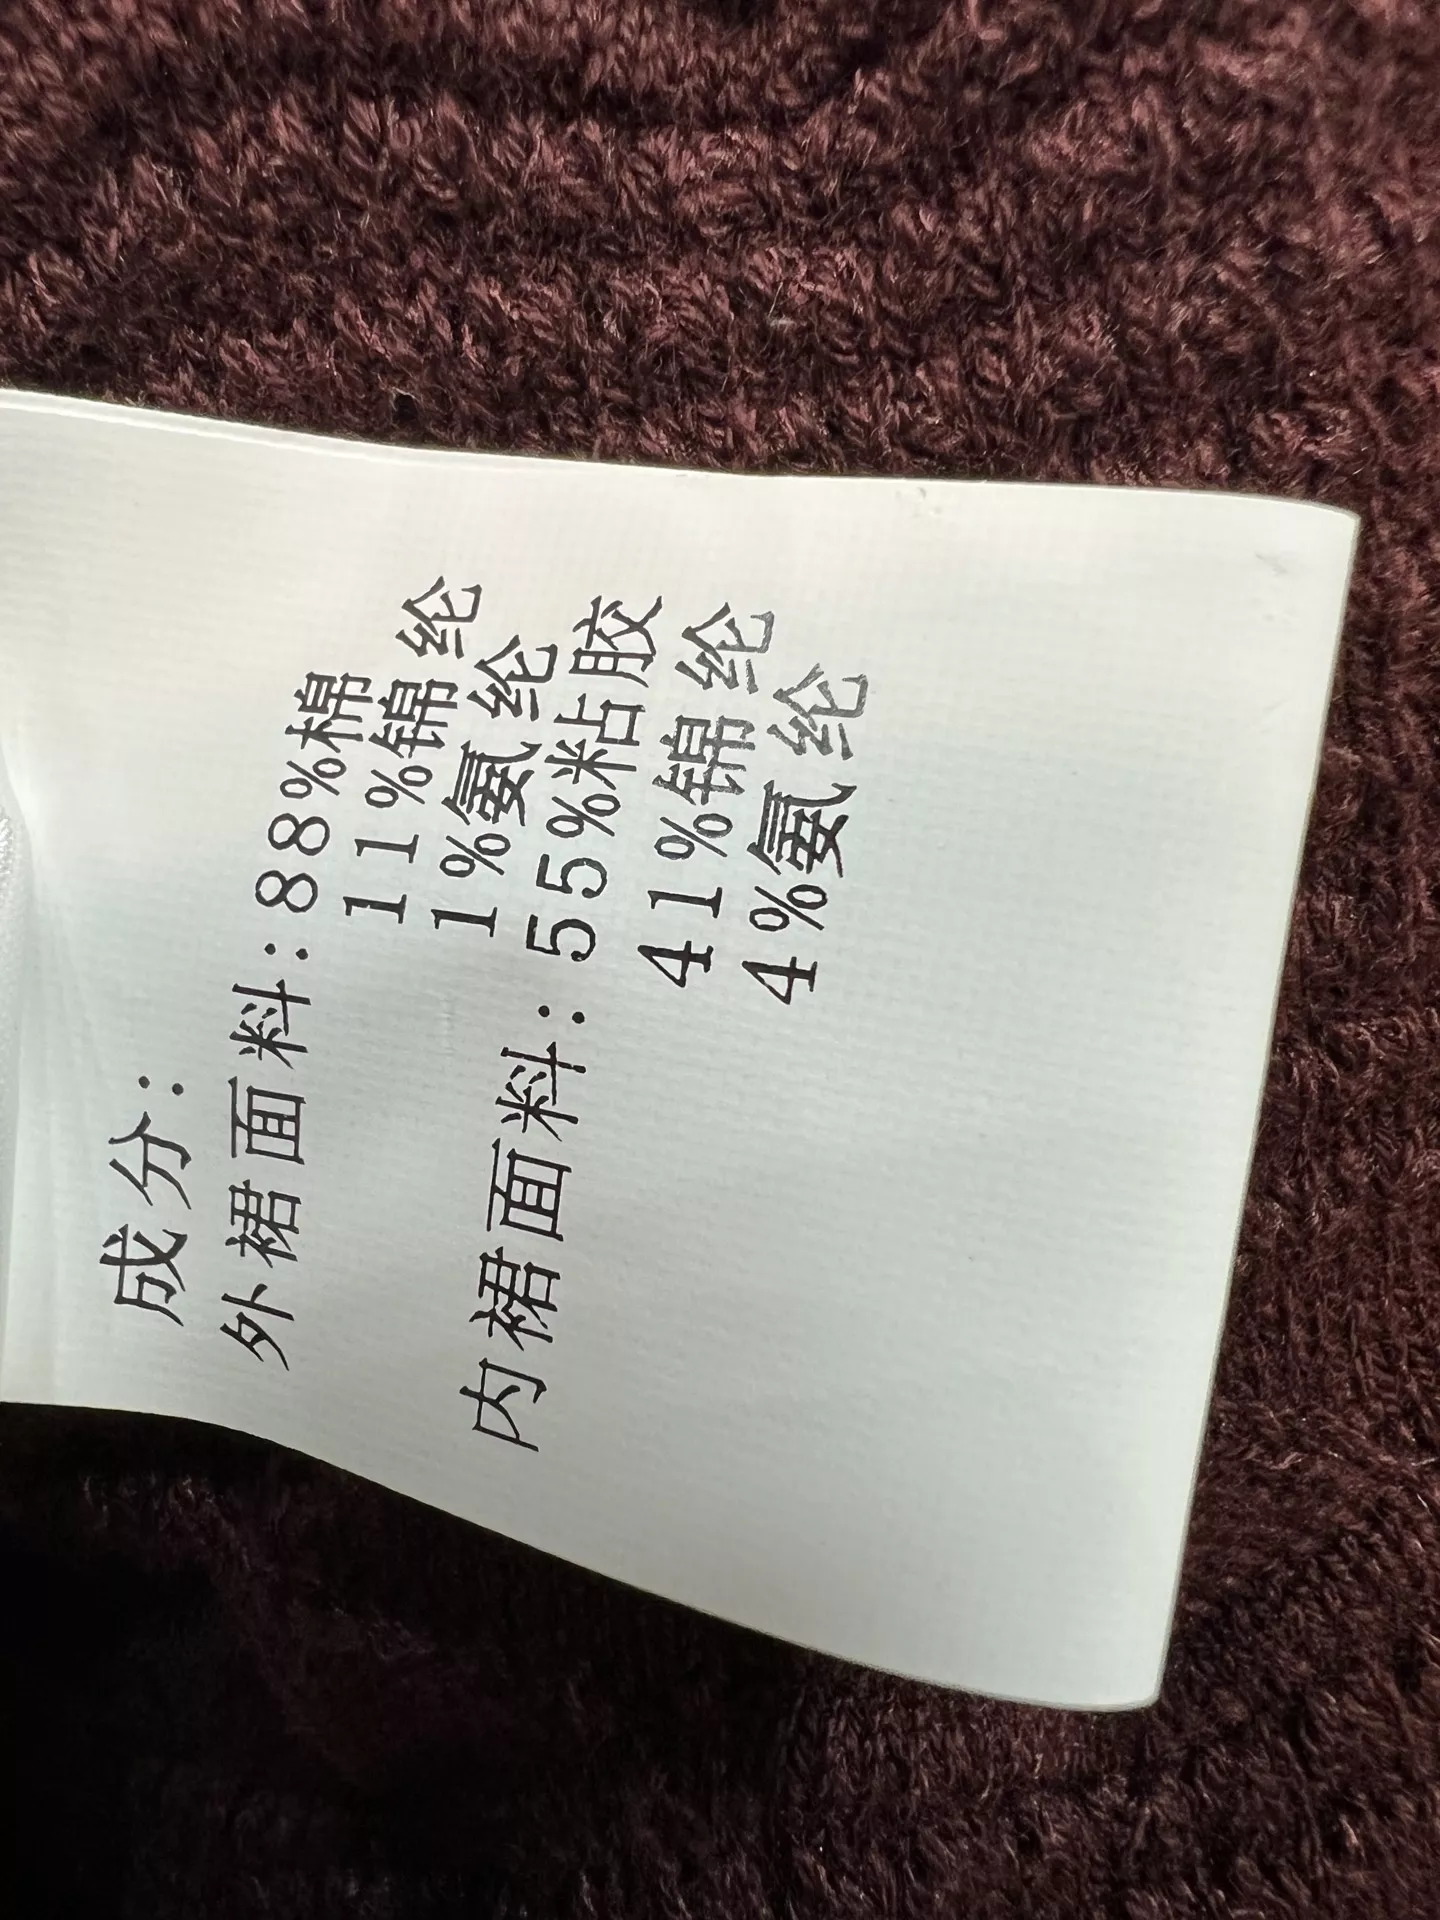 成分:
外裙面料:88%棉
11%锦纶
1%氨纶
内裙面料:55%粘胶
41%锦纶
4%氨纶